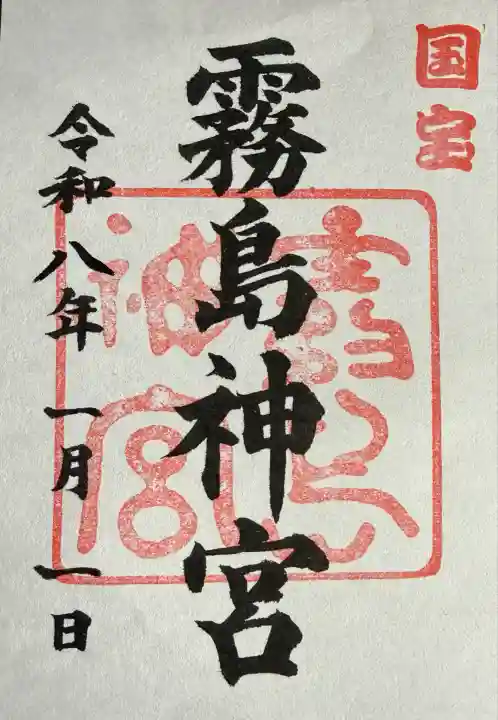 国宝
霧島神宮
令和八年 一月 一日